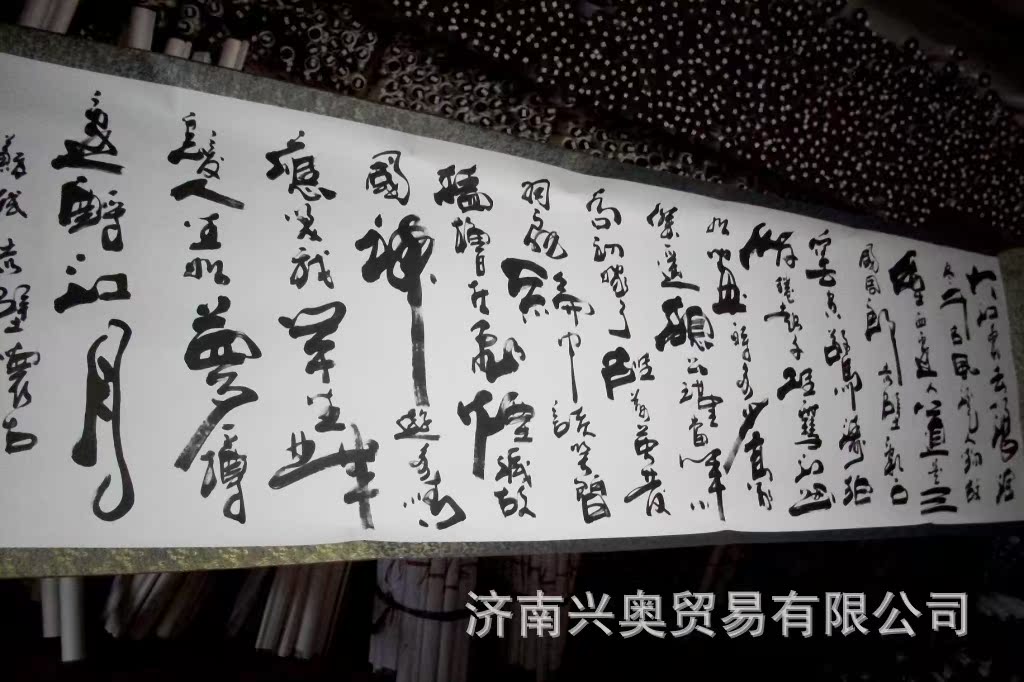 大江東去浪淘
盡千古風流人物故
壘西邊人道是三
國周郎赤壁亂石
穿空驚濤拍
岸捲起千堆雪江山
如畫一時多少豪
傑遙想公瑾當年小
喬初嫁了雄姿英發
羽扇綸巾談笑間
檣櫓灰飛煙滅故
國神遊多情
應笑我早生華
髮人生如夢一樽
還酹江月
蘇軾赤壁懷古
济南兴奥贸易有限公司